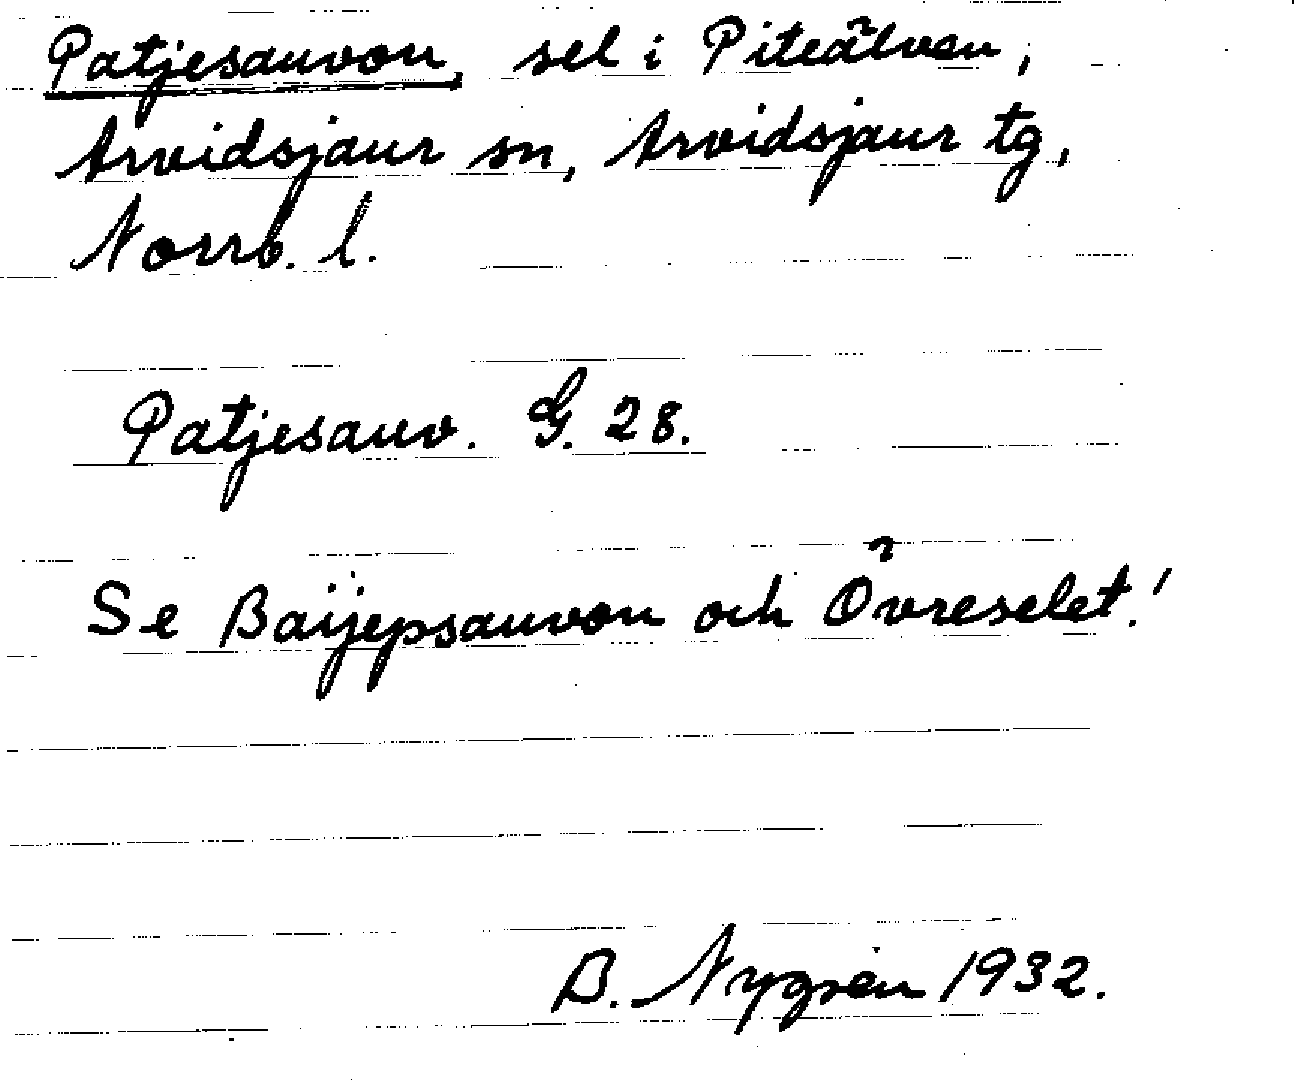 Patjesauvon, sel i Piteälven,
Arvidsjaur sn, Arvidsjaur tg,
Norrb. l.
Patjesauv. G. 28.
Se Baijepsauvon och Övreselet!
B. Nygren 1932.